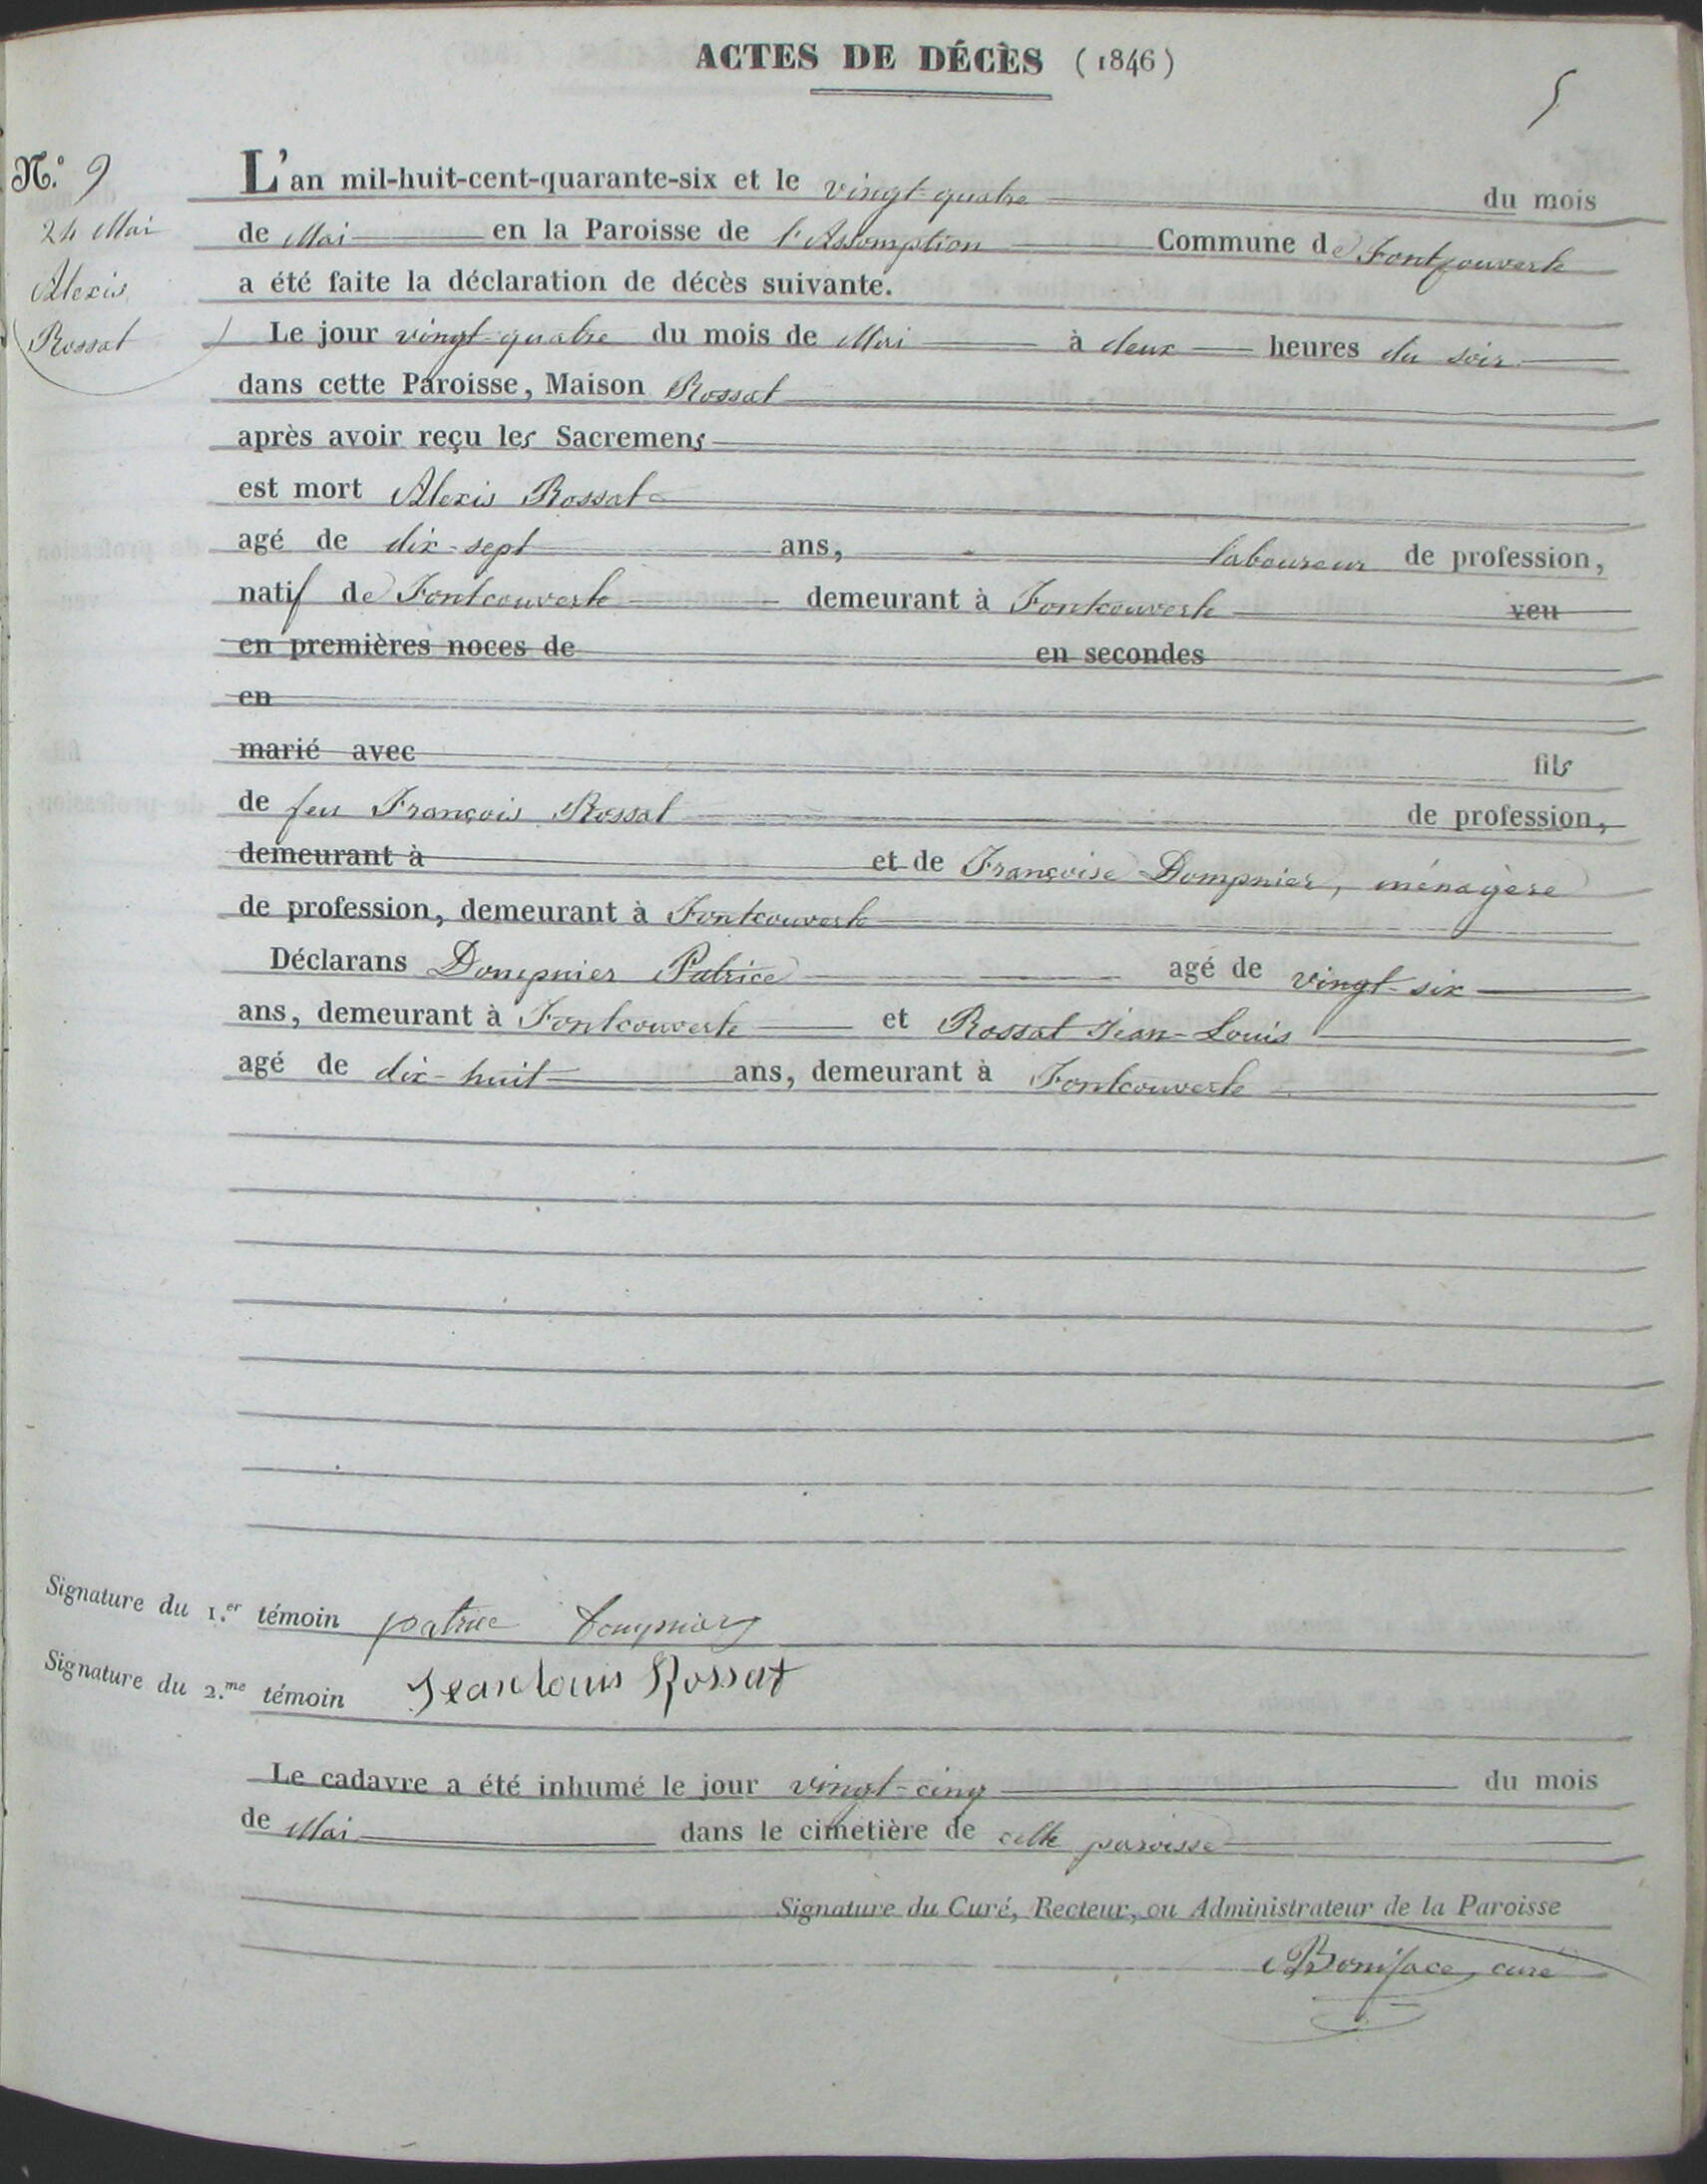 ACTES DE DÉCÈS (1846)
5
N.o 9
24 Mai
Alexis
Rossat
L'an mil-huit-cent-quarante-six et le vingt-quatre du mois
de Mai en la Paroisse de l'Assomption Commune de Fontcouverte
a été faite la déclaration de décès suivante.
Le jour vingt-quatre du mois de Mai à deux heures du soir
dans cette Paroisse, Maison Rossat
après avoir reçu les Sacremens
est mort Alexis Rossat
agé de dix-sept ans, laboureur de profession,
natif de Fontcouverte demeurant à Fontcouverte veu
en premières noces de en secondes
en
marié avec fils
de feu François Rossat de profession,
demeurant à et de Françoise Dompnier, ménagère
de profession, demeurant à Fontcouverte
Déclarans Dompnier Patrice agé de vingt-six
ans, demeurant à Fontcouverte et Rossat Jean-Louis
agé de dix-huit ans, demeurant à Fontcouverte
Signature du 1.er témoin patrice dompnier
Signature du 2.me témoin Jean louis Rossat
Le cadavre a été inhumé le jour vingt-cinq du mois
de Mai dans le cimetière de cette paroisse
Signature du Curé, Recteur, ou Administrateur de la Paroisse
Boniface, curé